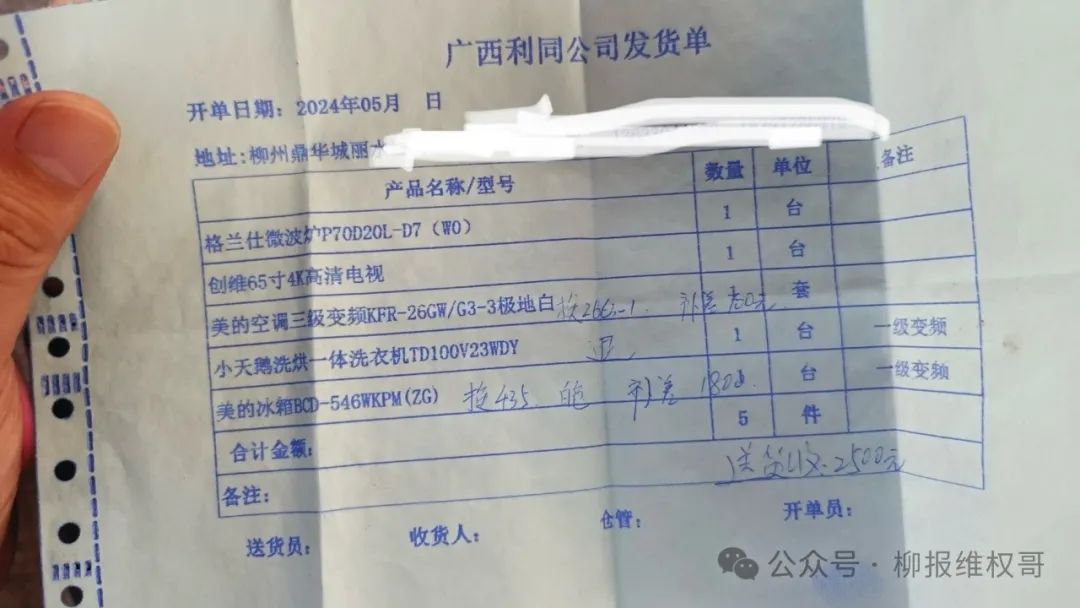 广西利同公司发货单
开单日期：2024年05月 日
地址:柳州鼎华城丽水
产品名称/型号 数量 单位 备注
格兰仕微波炉P70D20L-D7（W0） 1 台
创维65寸4K高清电视 1 台
美的空调三级变频KFR-26GW/G3-3极地白 换26G-1. 补差 元 套
小天鹅洗烘一体洗衣机TD100V23WDY 退 1 台 一级变频
美的冰箱BCD-546WKPM(ZG) 换435. 补差1800. 台 一级变频
合计金额: 5 件
备注: 送货收.2500元
送货员: 收货人: 仓管: 开单员:
公众号·柳报维权哥